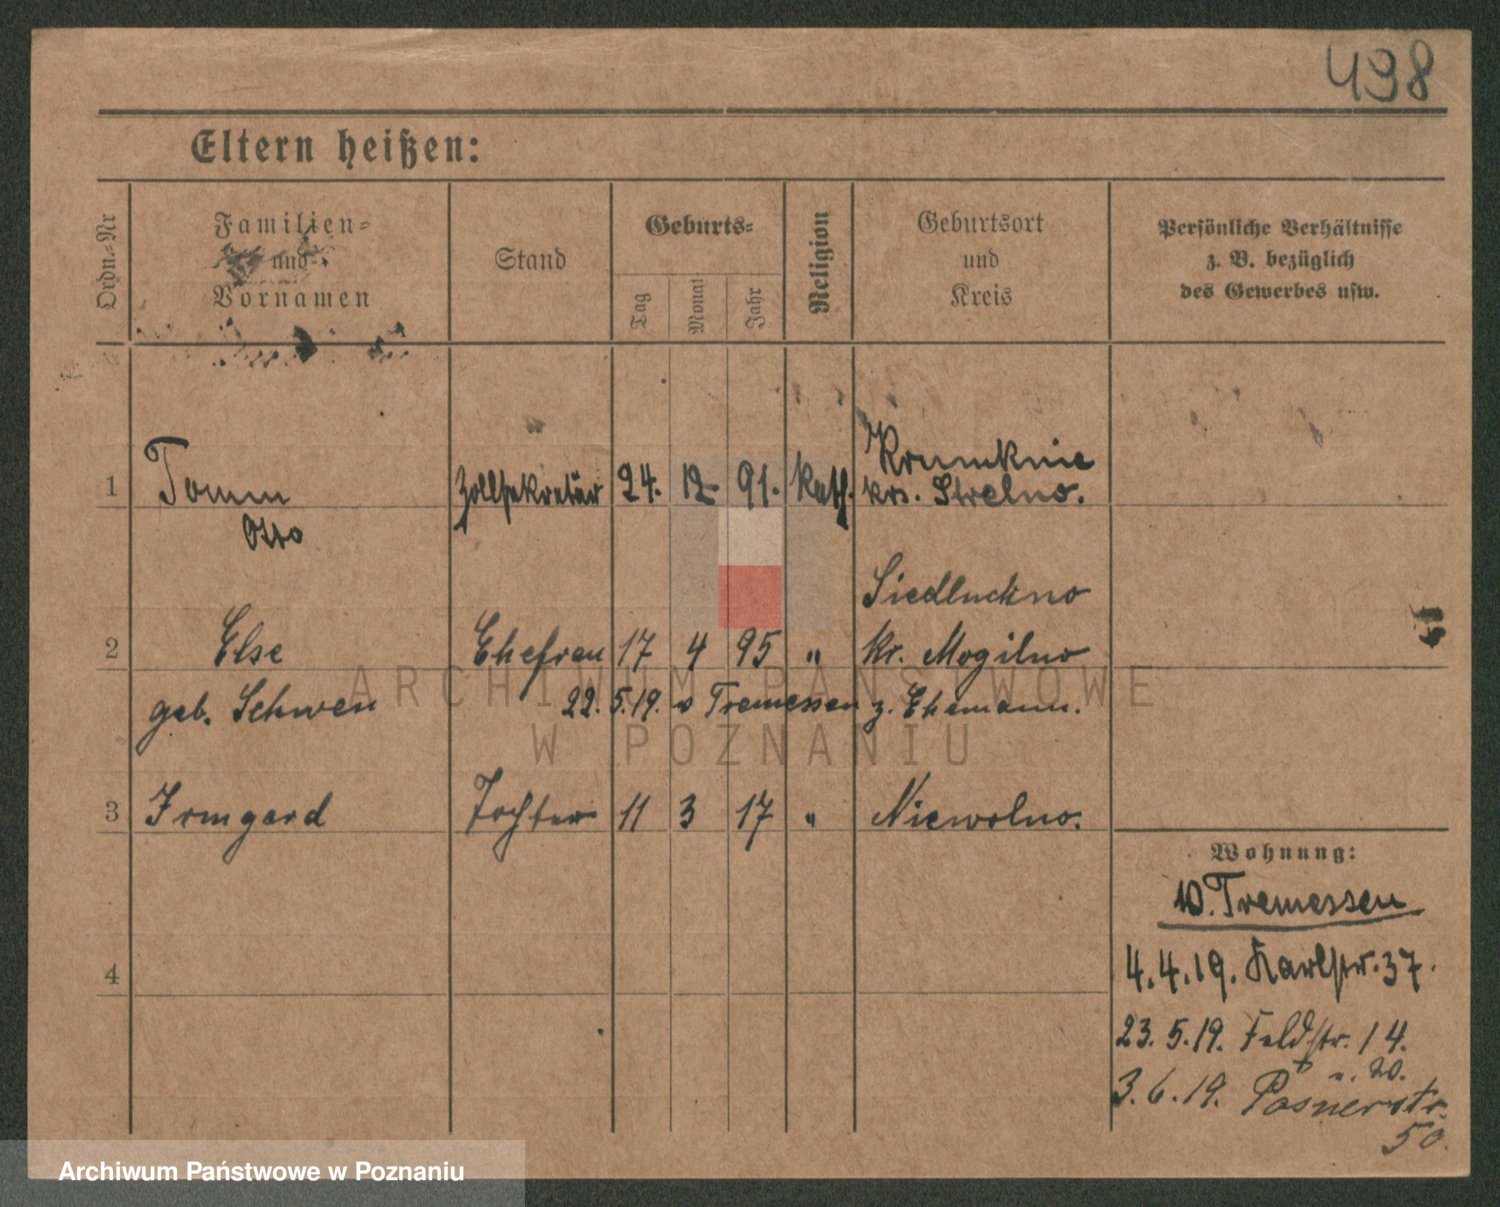 498
Eltern heißen:
Ordn.-Nr
Familien-
und
Vornamen
Stand
Geburts-
Tag
Monat
Jahr
Religion
Geburtsort
und
Kreis
Persönliche Verhältnisse
z. B. bezüglich
des Gewerbes usw.
Krumknie
1 Tomm Zollsekretär 24. 12. 91. Kath. krs. Strelno.
Otto
Siedluchno
2 Else Ehefrau 17 4 95 " kr. Mogilno
geb. Schwen 22. 5. 19. v Tremessen z. Ehemann.
3 Irmgard Tochter 11 3 17 " Niewolno.
4
Wohnung:
Tremessen
4. 4. 19. Karlstr. 37.
23. 5. 19. Feldstr. 14.
3. 6. 19. Posnerstr.
50.
ARCHIWUM PAŃSTWOWE
W POZNANIU
Archiwum Państwowe w Poznaniu